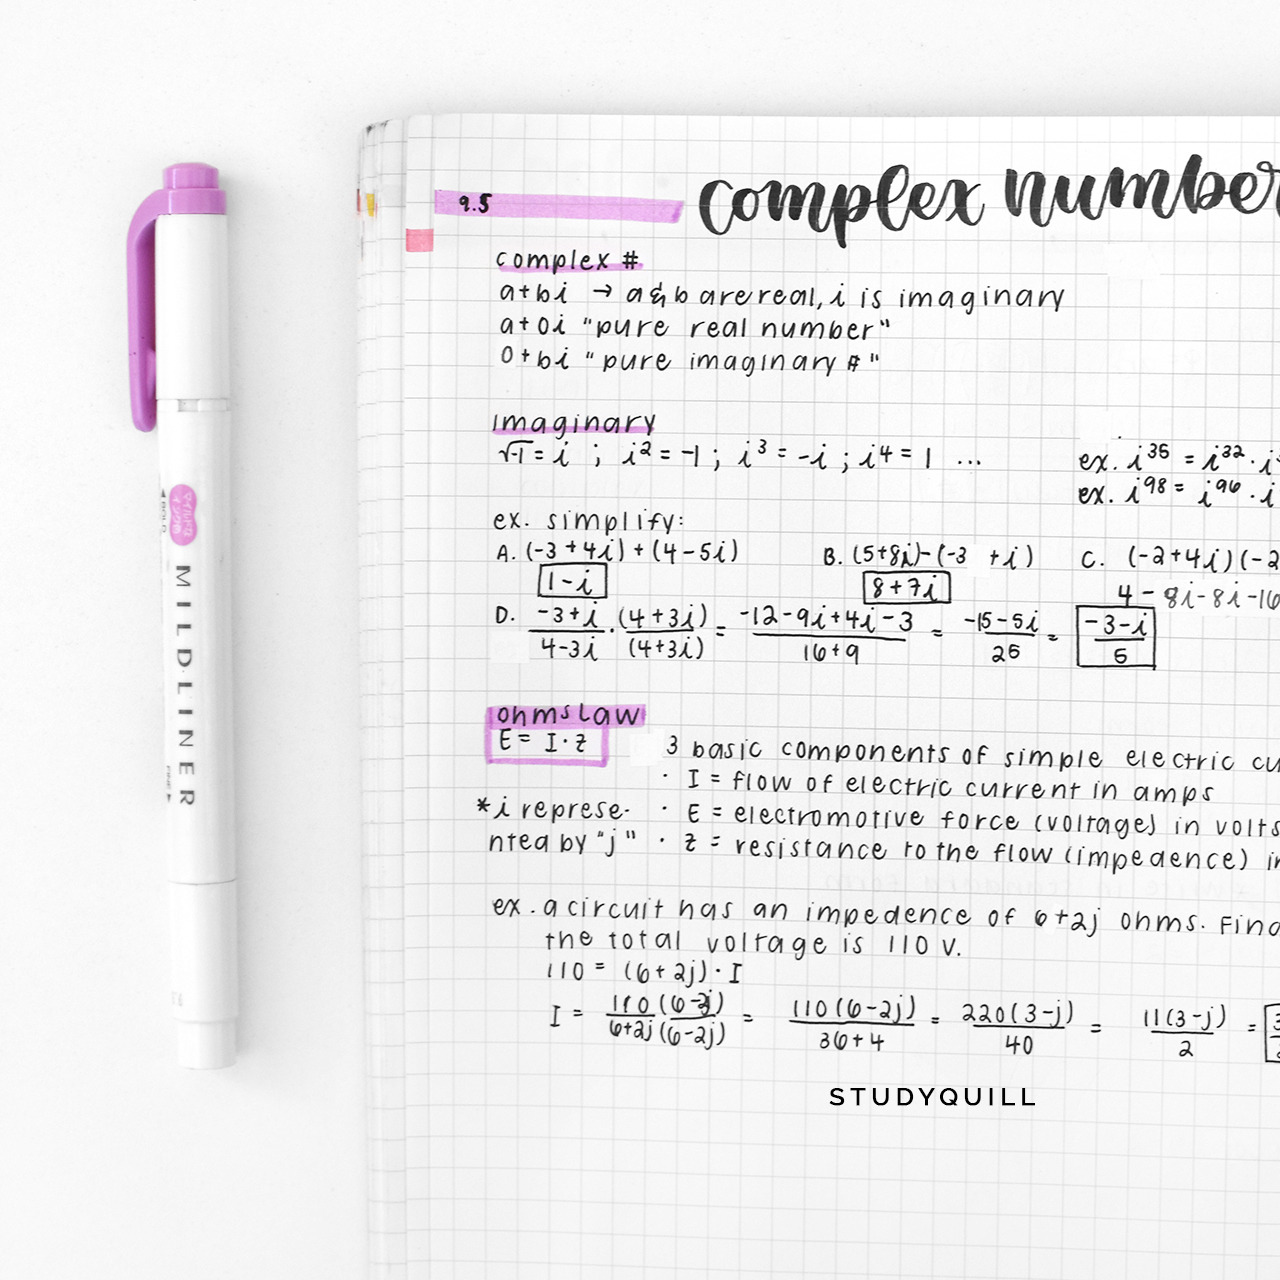 9.5
complex number
complex #
a+bi → a & b are real, i is imaginary
a+0i "pure real number"
0+bi "pure imaginary #"
imaginary
√-1 = i ; i² = -1 ; i³ = -i ; i⁴ = 1 ...
ex. i³⁵ = i³² · i
ex. i⁹⁸ = i⁹⁶ · i
ex. simplify:
A. (-3+4i)+(4-5i)
1-i
B. (5+8i)-(-3 +i)
8+7i
C. (-2+4i)(-2
4-8i-8i-16
D. (-3+i)/(4-3i) · (4+3i)/(4+3i) = (-12-9i+4i-3)/(16+9) = (-15-5i)/25 = (-3-i)/5
ohms law
E = I·z
3 basic components of simple electric cu
· I = flow of electric current in amps
*i represe- · E = electromotive force (voltage) in volts
nted by "j" · z = resistance to the flow (impedence) in
ex. a circuit has an impedence of 6+2j ohms. Find
the total voltage is 110 v.
110 = (6+2j)·I
I = 110(6-2j)/6+2j(6-2j) = 110(6-2j)/36+4 = 220(3-j)/40 = 11(3-j)/2 = 3
STUDYQUILL
MILDLINER
マイルドライナー